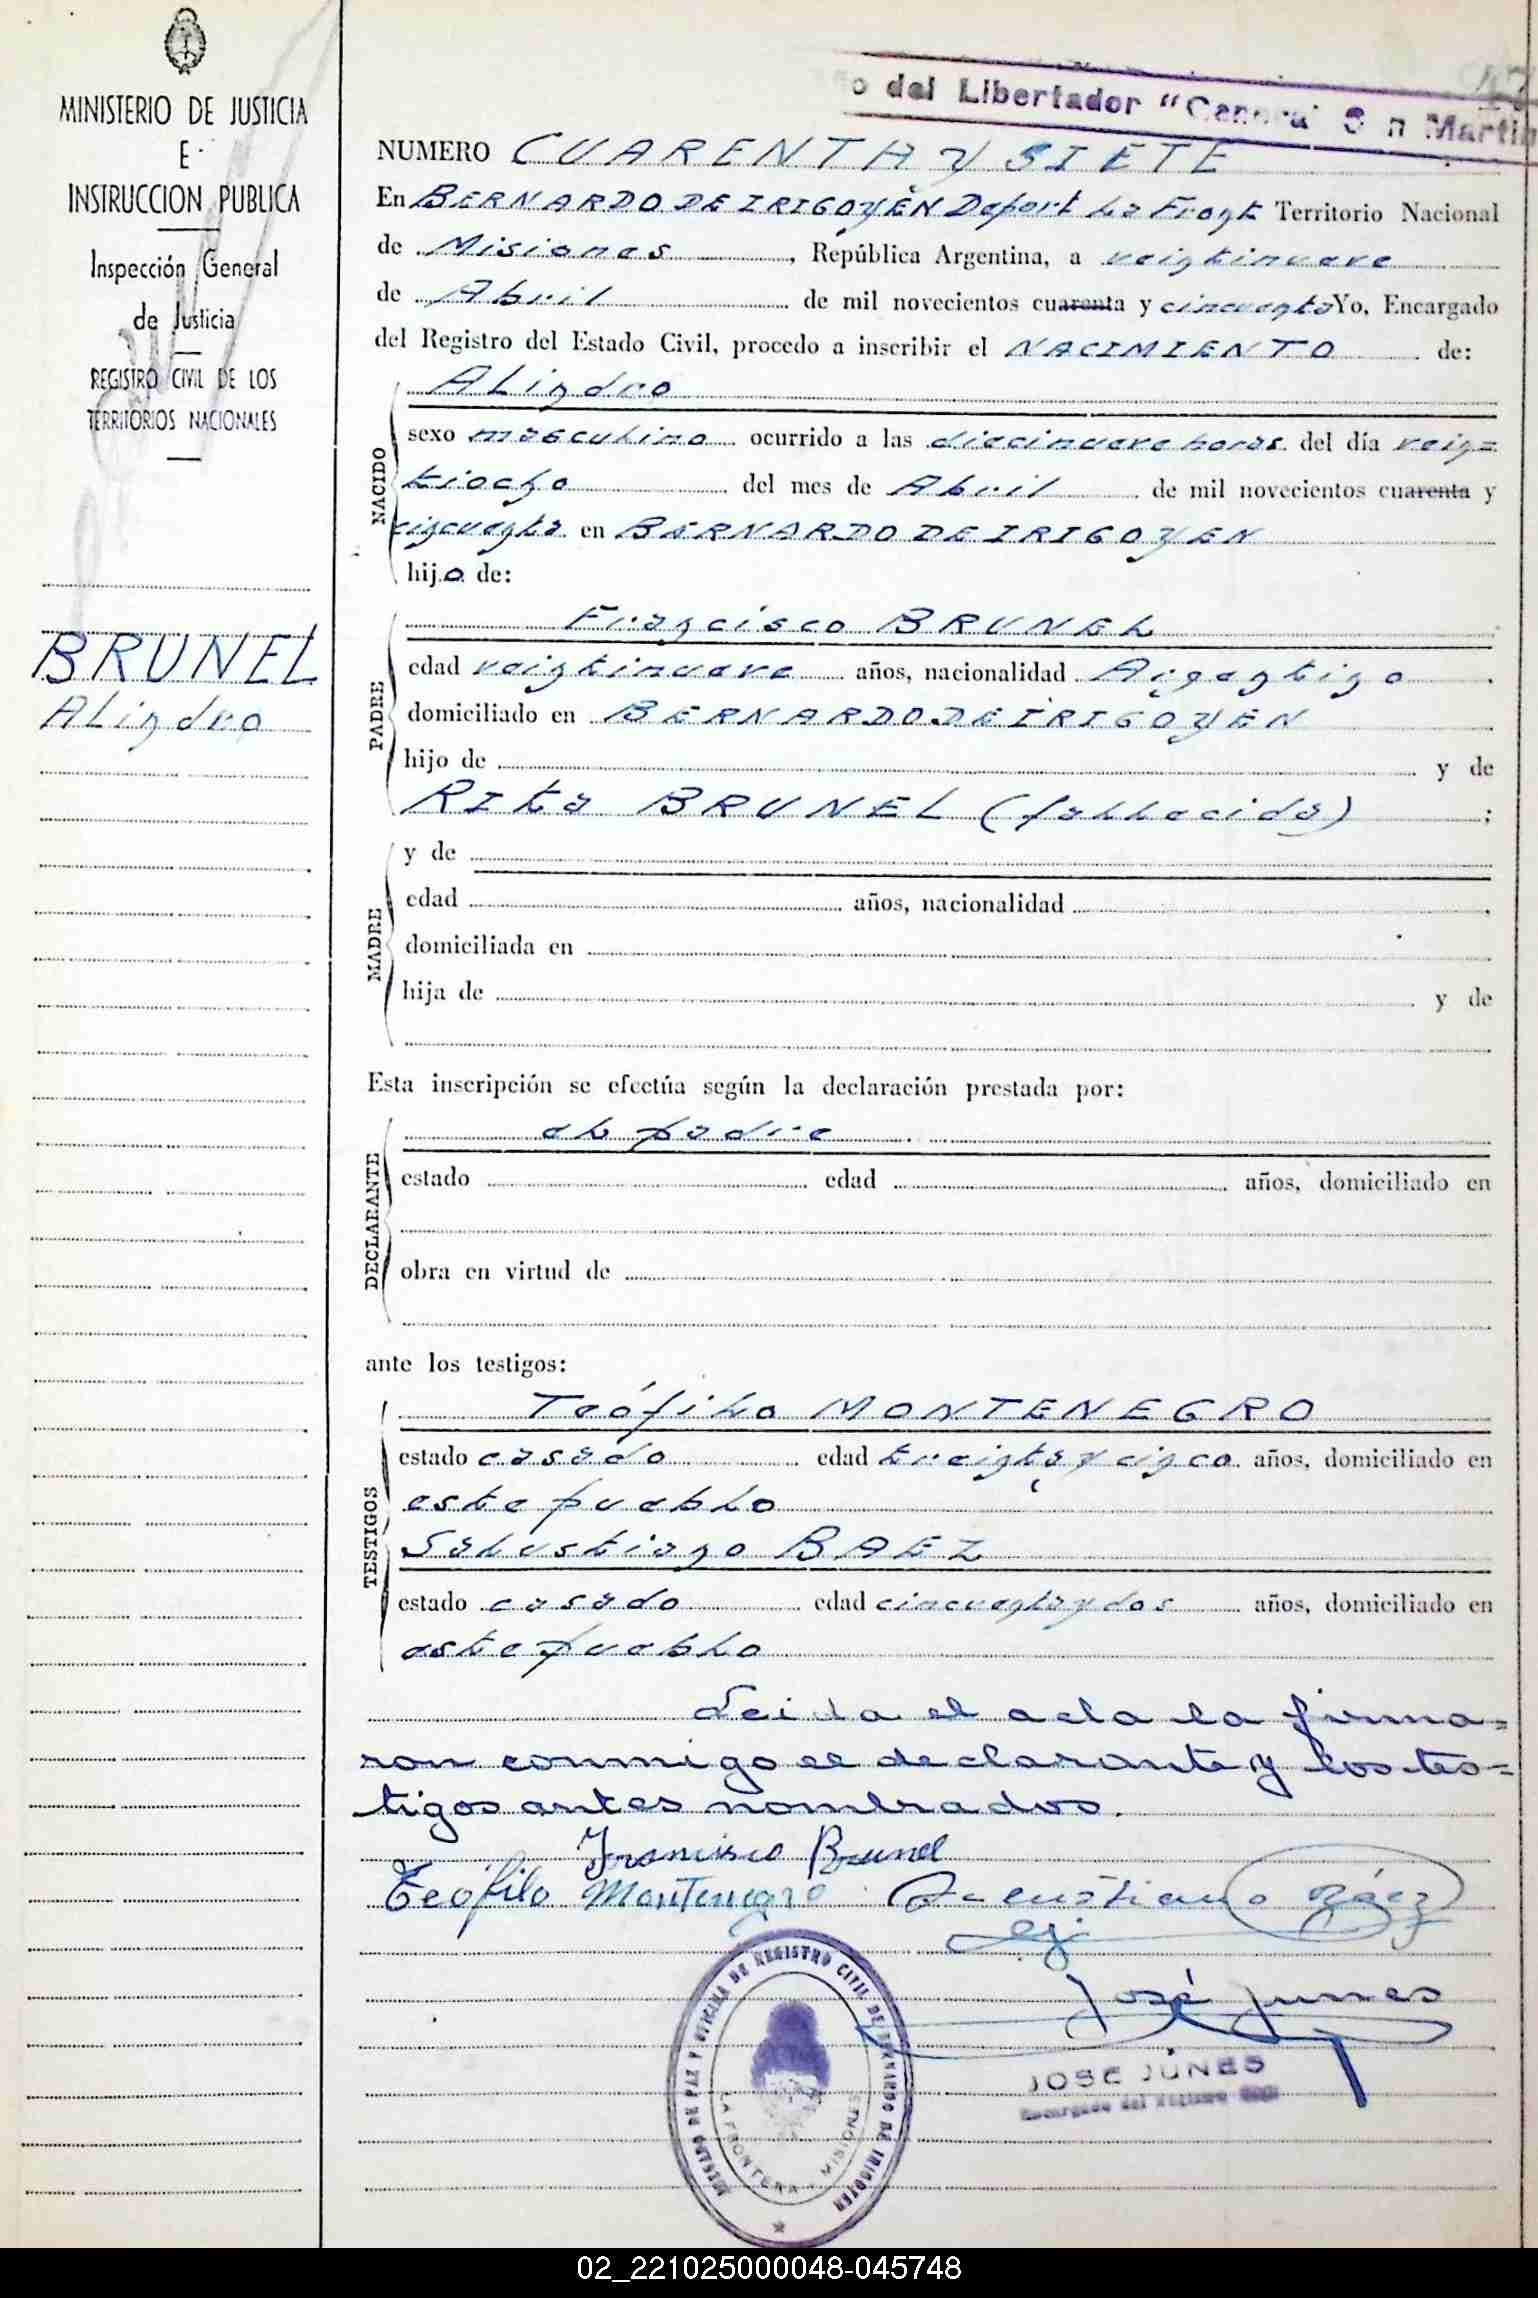 MINISTERIO DE JUSTICIA
E
INSTRUCCION PUBLICA
Inspección General
de Justicia
REGISTRO CIVIL DE LOS
TERRITORIOS NACIONALES
BRUNEL
ALindro
47
o del Libertador "General S n Martin
NUMERO CUARENTA y SIETE
En BERNARDO DE IRIGOYEN Deport La Front Territorio Nacional
de Misiones, República Argentina, a veintinueve
de Abril de mil novecientos cuarenta y cincuenta Yo, Encargado
del Registro del Estado Civil, procedo a inscribir el NACIMIENTO de:
NACIDO
ALindro
sexo masculino ocurrido a las diecinueve horas del día vein=
tiocho del mes de Abril de mil novecientos cuarenta y
cincuenta en BERNARDO DE IRIGOYEN
hijo de:
PADRE
Francisco BRUNEL
edad veintinueve años, nacionalidad Argentino
domiciliado en BERNARDO DE IRIGOYEN
hijo de y de
RITA BRUNEL (fallecida) ;
MADRE
y de
edad años, nacionalidad
domiciliada en
hija de y de
Esta inscripción se efectúa según la declaración prestada por:
DECLARANTE
el padre
estado edad años, domiciliado en
obra en virtud de
ante los testigos:
TESTIGOS
Teófilo MONTENEGRO
estado casado edad treinta y cinco años, domiciliado en
este pueblo
Salustiano BAEZ
estado casado edad cincuenta y dos años, domiciliado en
este pueblo
Leida el acta la firma=
ron conmigo el declarante y los tes=
tigos antes nombrados.
Francisco Brunel
Teófilo Montenegro Salustiano Báez
José Junes
JOSE JUNES
Encargado del Registro Civil
JUZGADO DE PAZ Y OFICINA DE REGISTRO CIVIL DE BERNARDO DE IRIGOYEN
LA FRONTERA - MISIONES
02_221025000048-045748